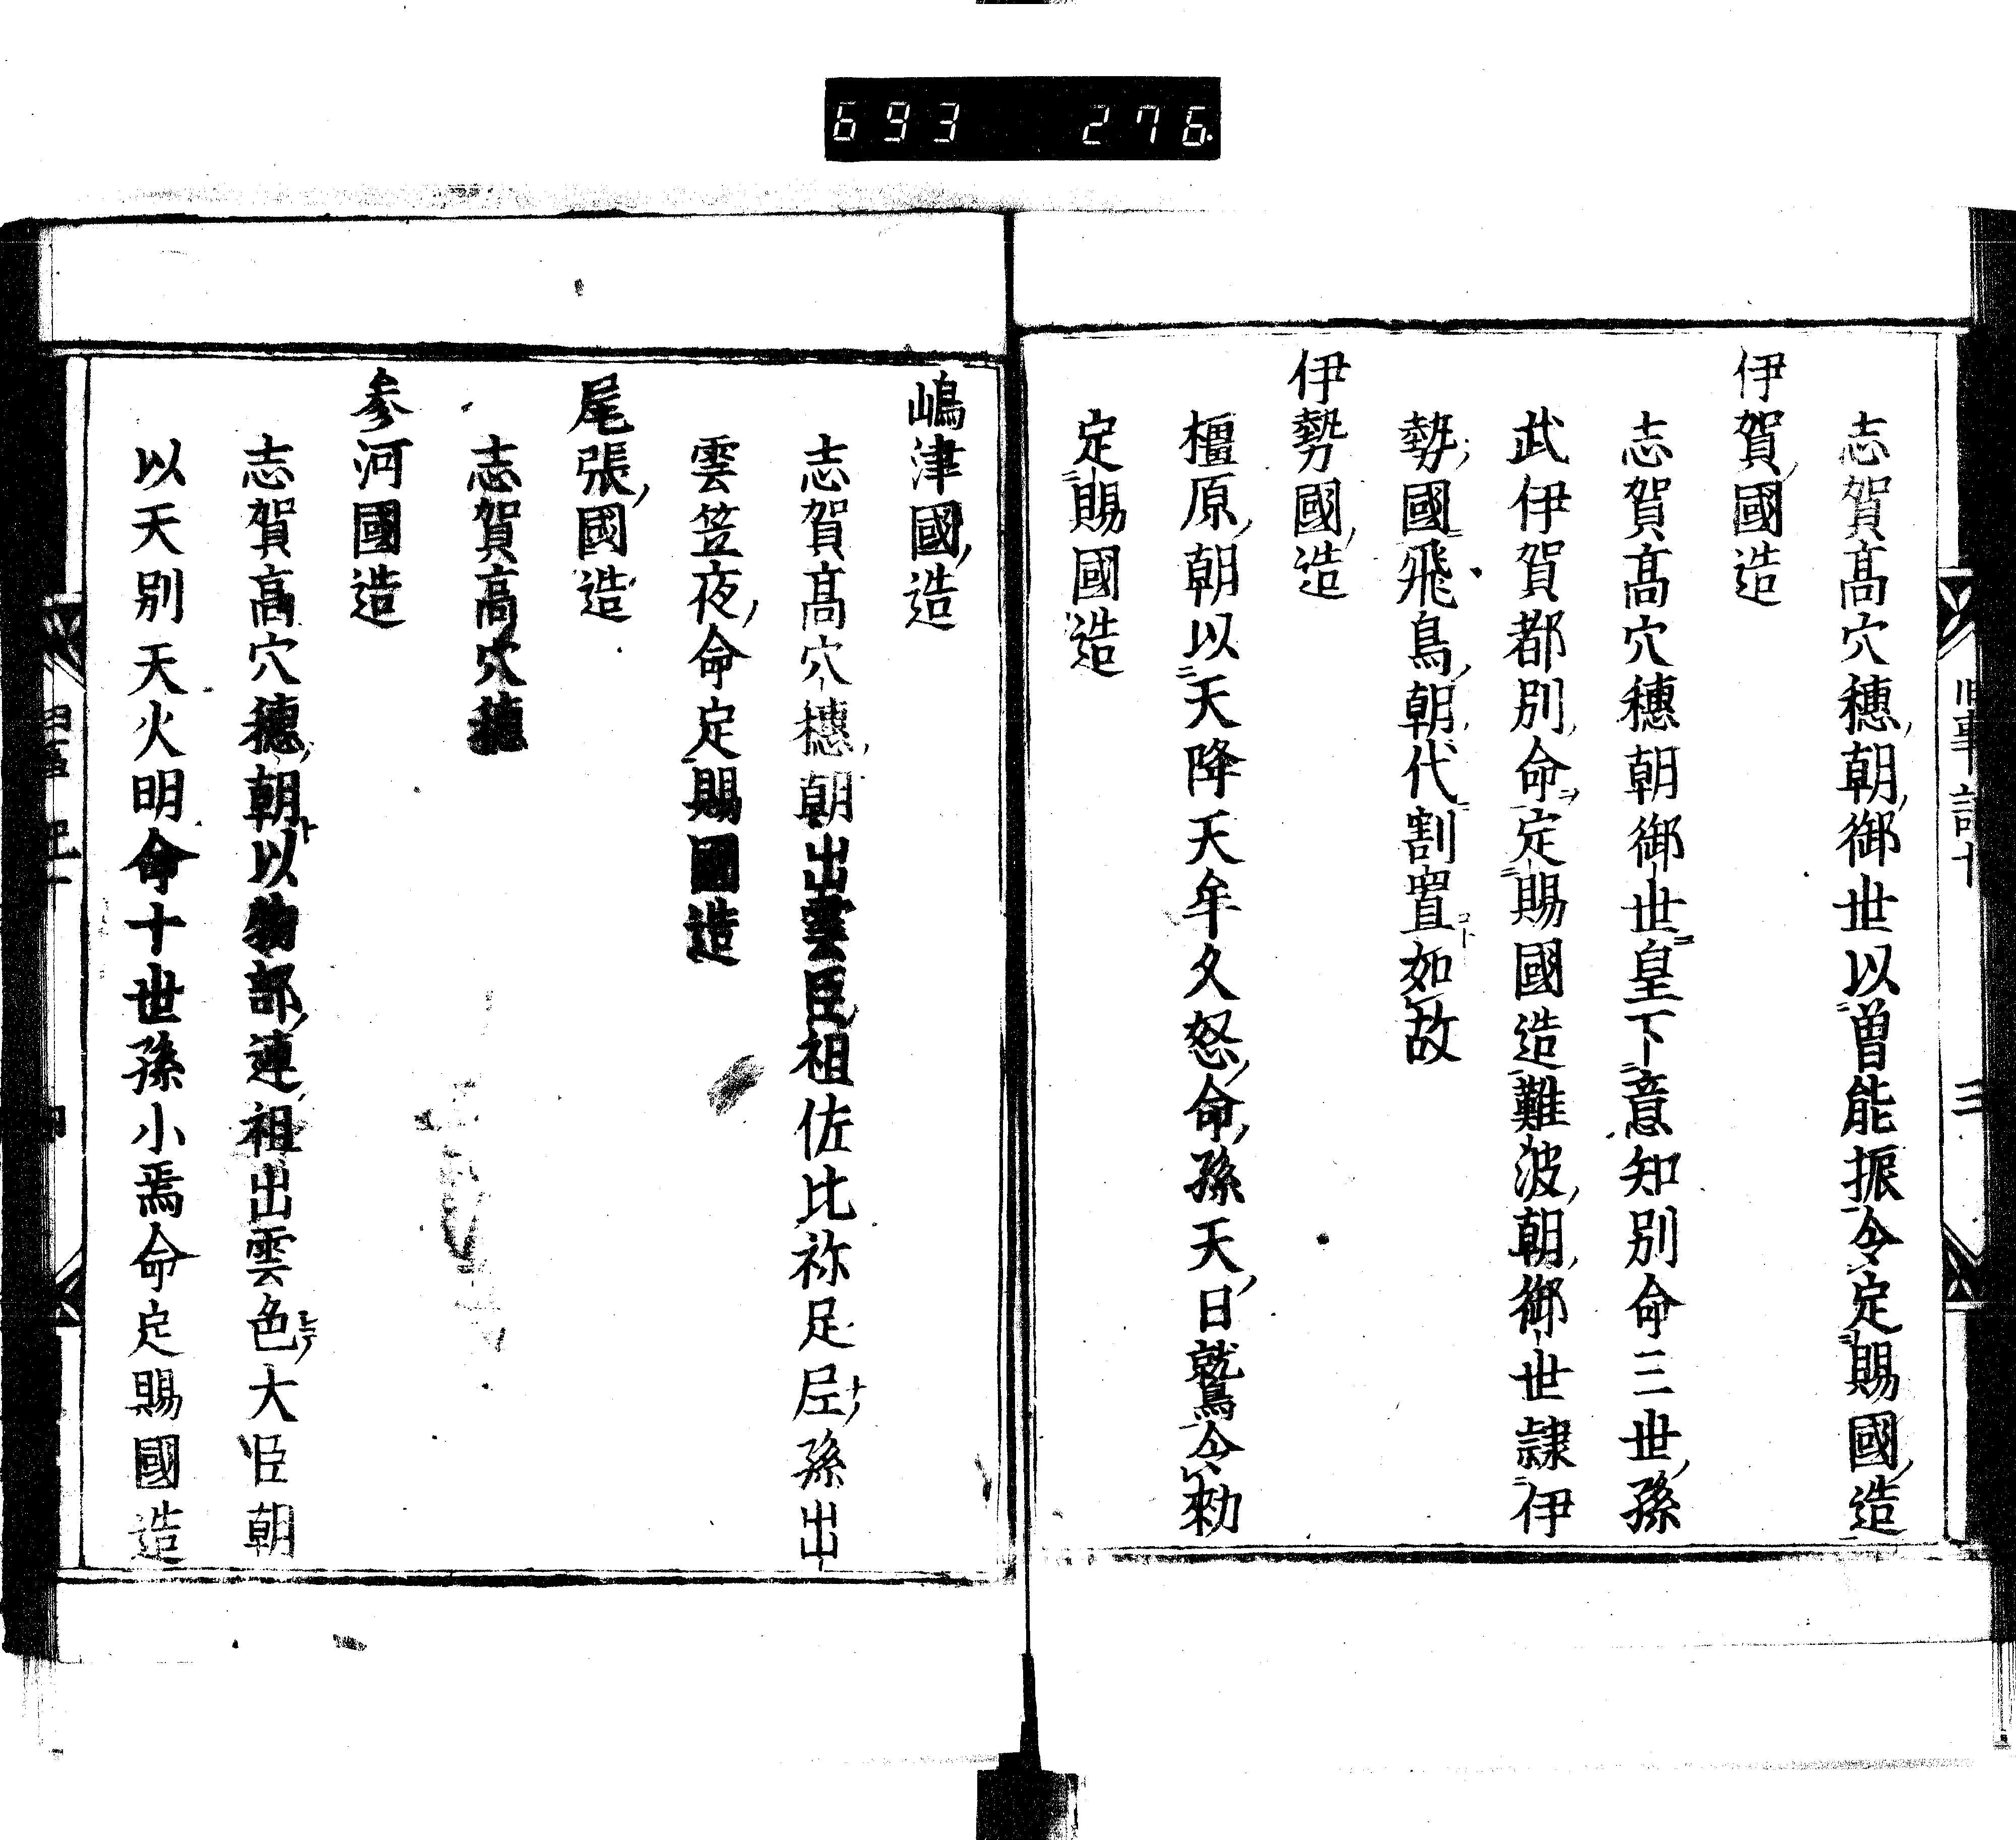 693 276
志賀髙穴穗朝御世以曽能振令定賜國造
伊賀國造
志賀髙穴穗朝御世皇下意知別命三世孫
武伊賀都別命定賜國造難波朝御世隷伊
勢國飛鳥朝代割置如故
伊勢國造
橿原朝以天降天牟久怒命孫天日鷲令勑
定賜國造
旧事記十 三
嶋津國造
志賀髙穴穗朝出雲臣祖佐比祢足孫出
雲笠夜命定賜國造
尾張國造
志賀高穴穗
参河國造
志賀高穴穗朝以物部連祖出雲色大臣朝
以天別天火明命十世孫小焉命定賜國造